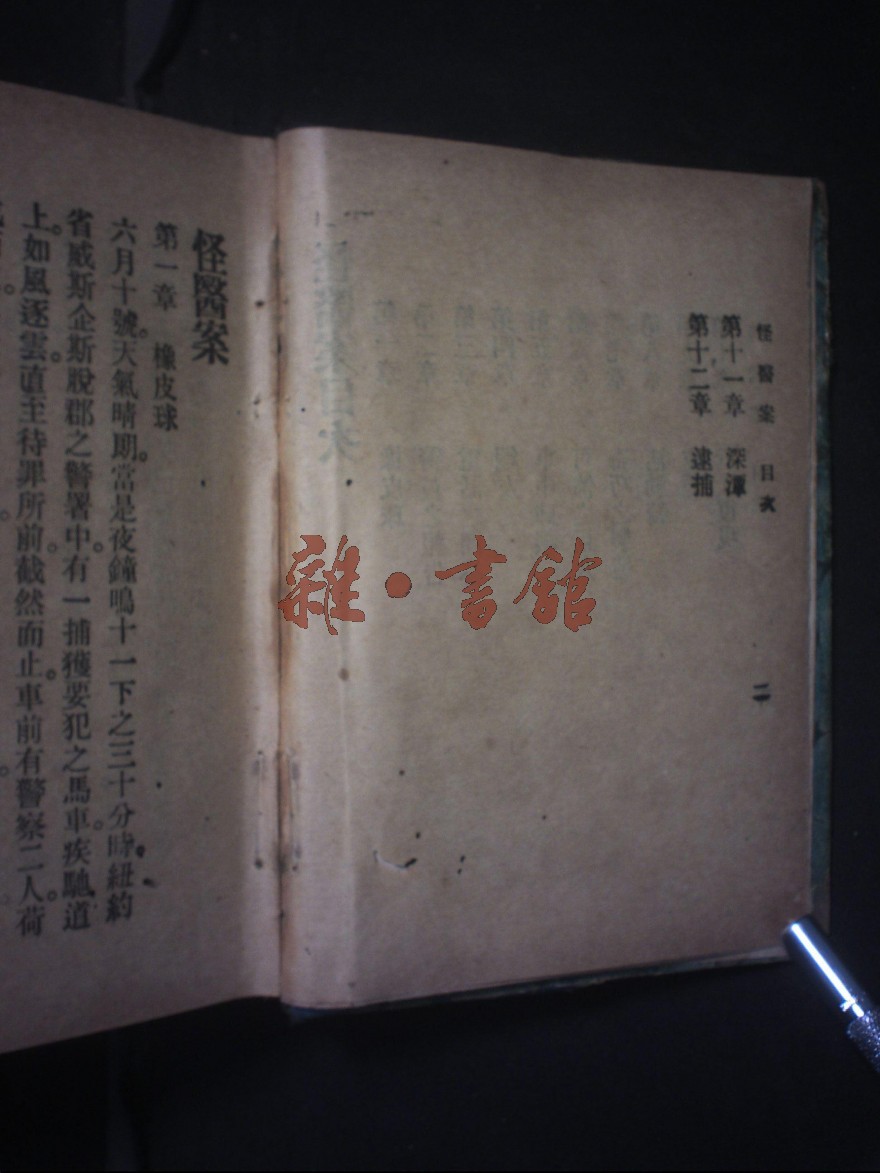 怪醫案 目次 二
第十一章 深潭
第十二章 逮捕
雜·書館
怪醫案
第一章 橡皮球
六月十號。天氣晴期。當是夜鐘鳴十一下之三十分時。紐約
省威斯企斯脫郡之警署中。有一捕獲要犯之馬車。疾馳道
上。如風逐雲。直至待罪所前。截然而止。車前有警察二人。荷